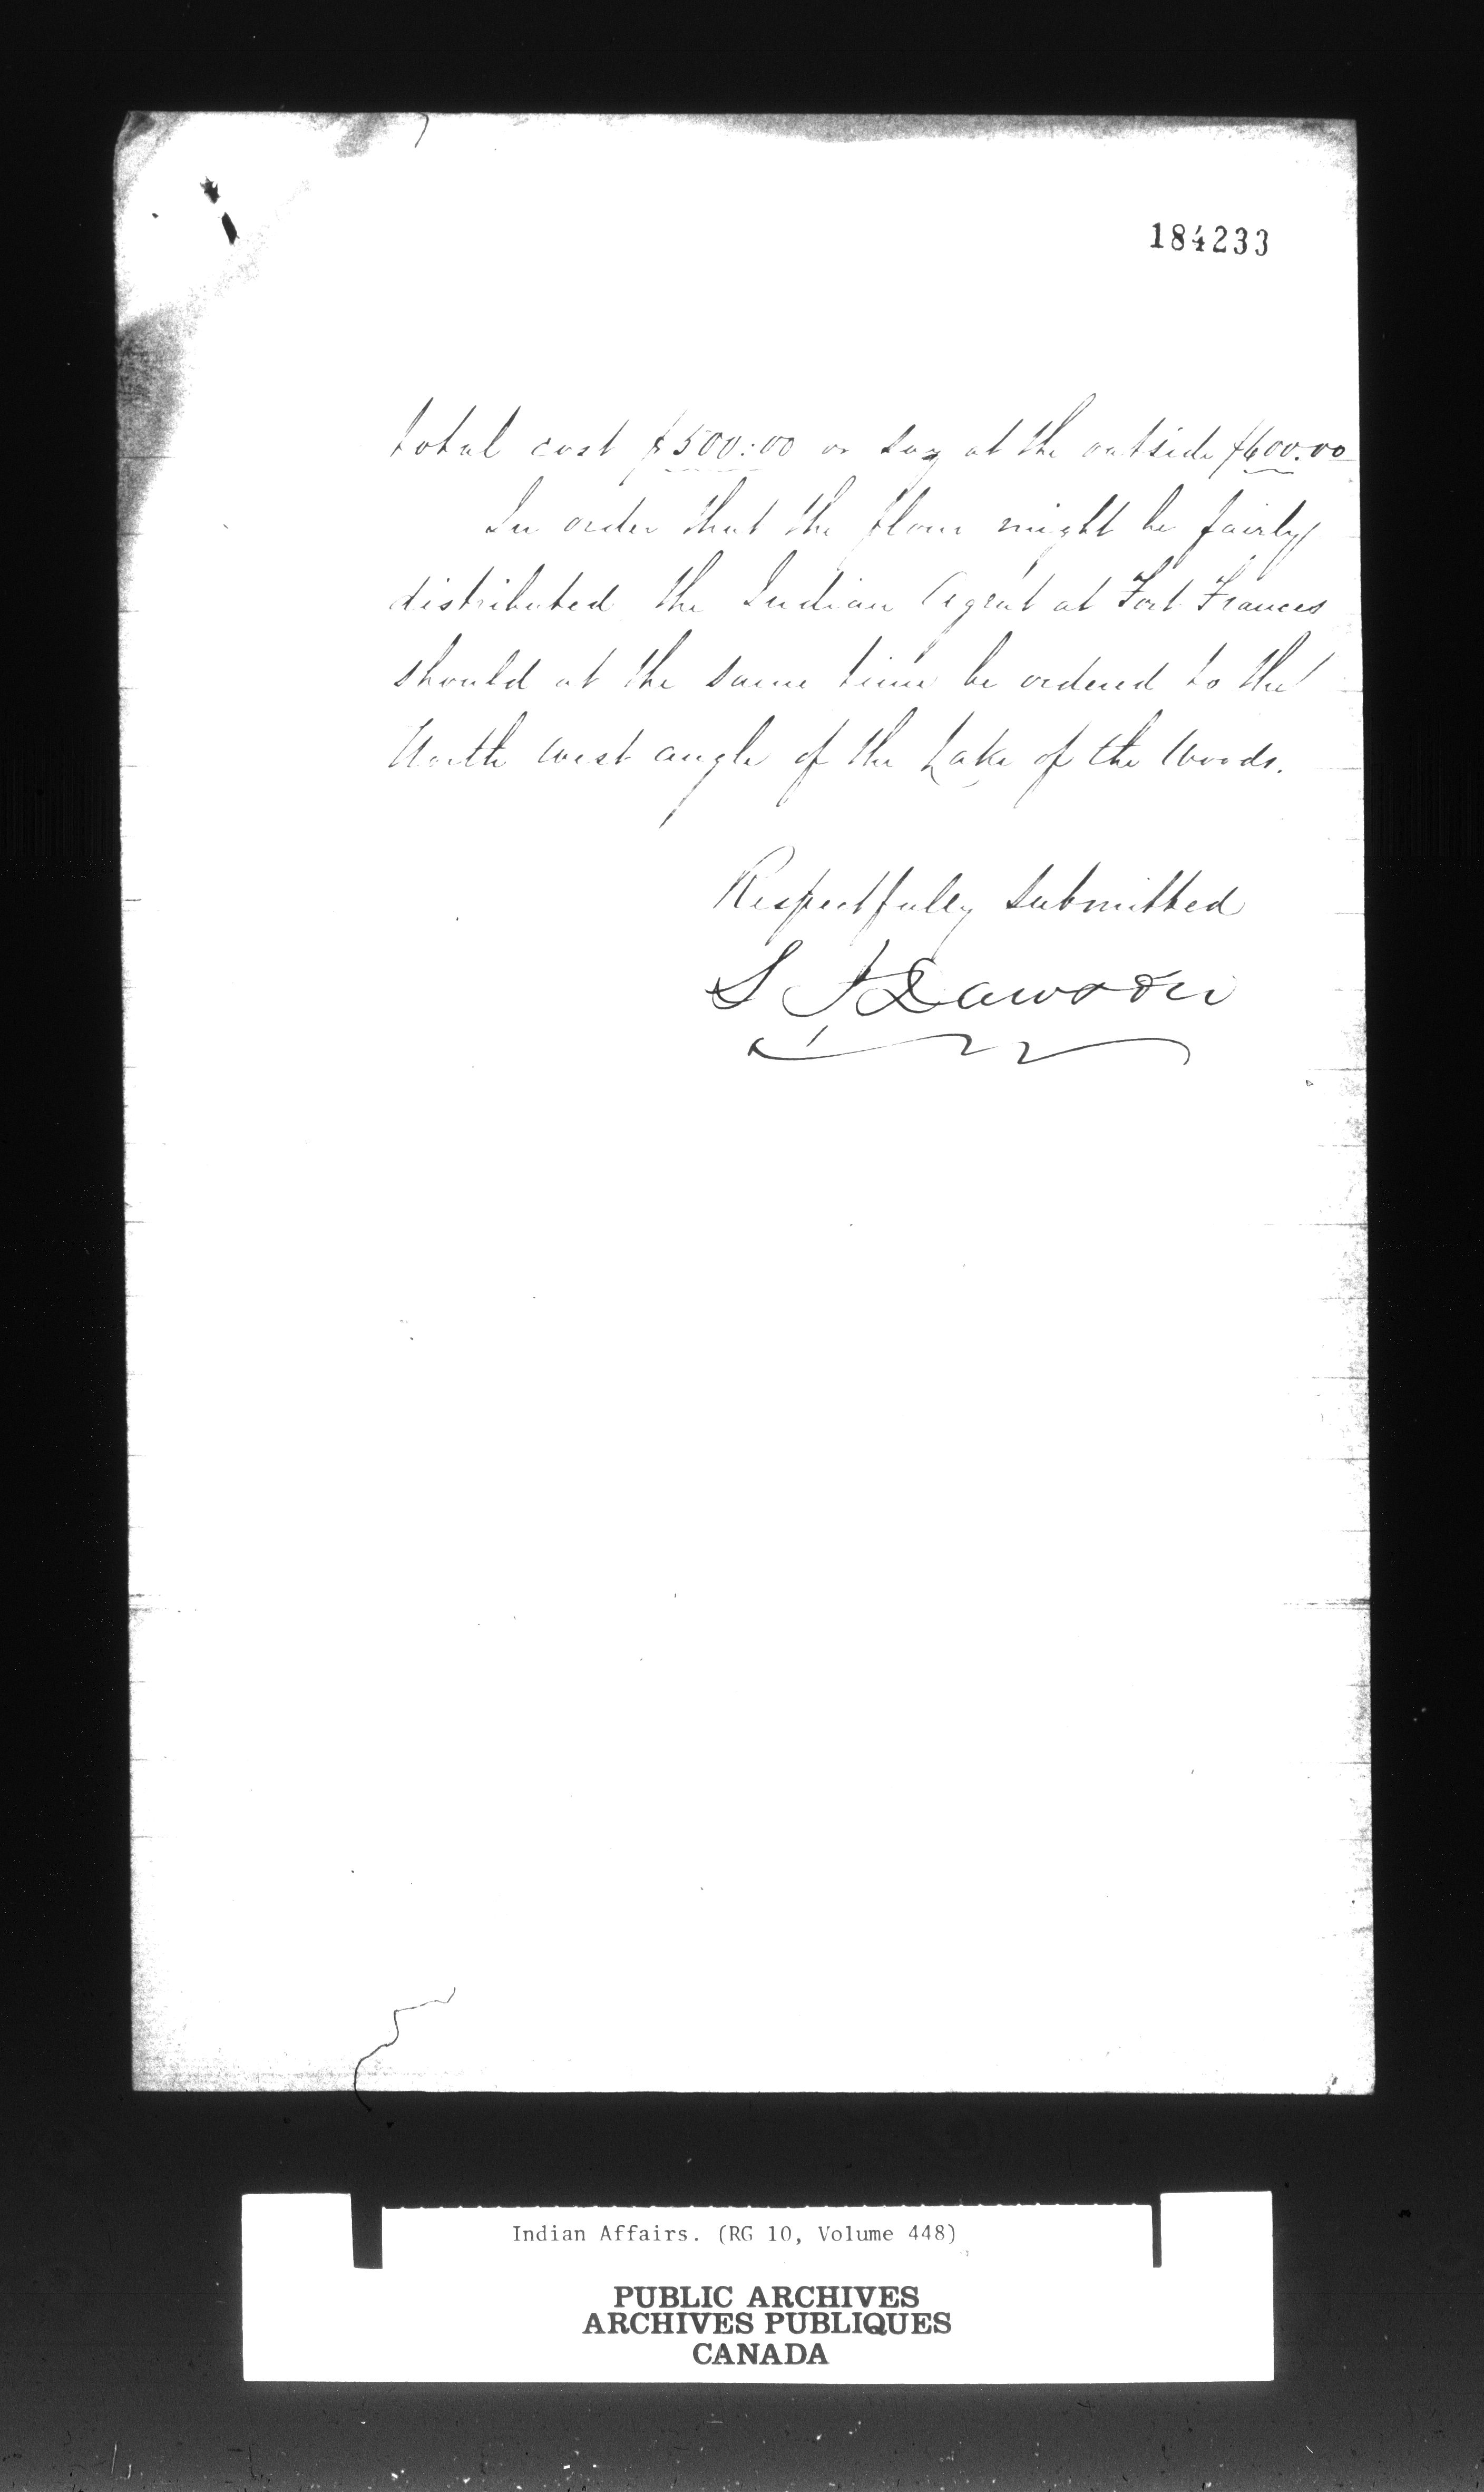 184233
total cost $500:00 or say at the outside $600.00
In order that the flour might be fairly
distributed the Indian Agent at Fort Frances
should at the same time be ordered to the
North west angle of the Lake of the Woods.
Respectfully submitted
S J Dawson
Indian Affairs. (RG 10, Volume 448)
PUBLIC ARCHIVES
ARCHIVES PUBLIQUES
CANADA